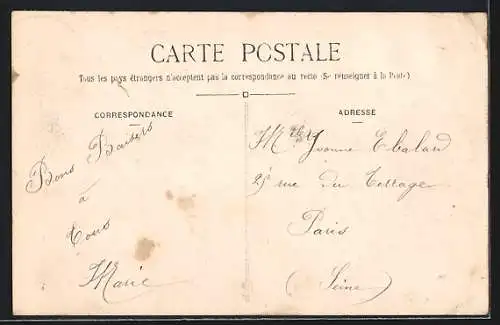 CARTE POSTALE
Tous les pays étrangers n'acceptent pas la correspondance au recto (Se renseigner à la Poste)
CORRESPONDANCE
ADRESSE
Bons Baisers
à
Tous
Marie
Mlle Yvonne Ebalard
rue du Terrage
Paris
(Seine)